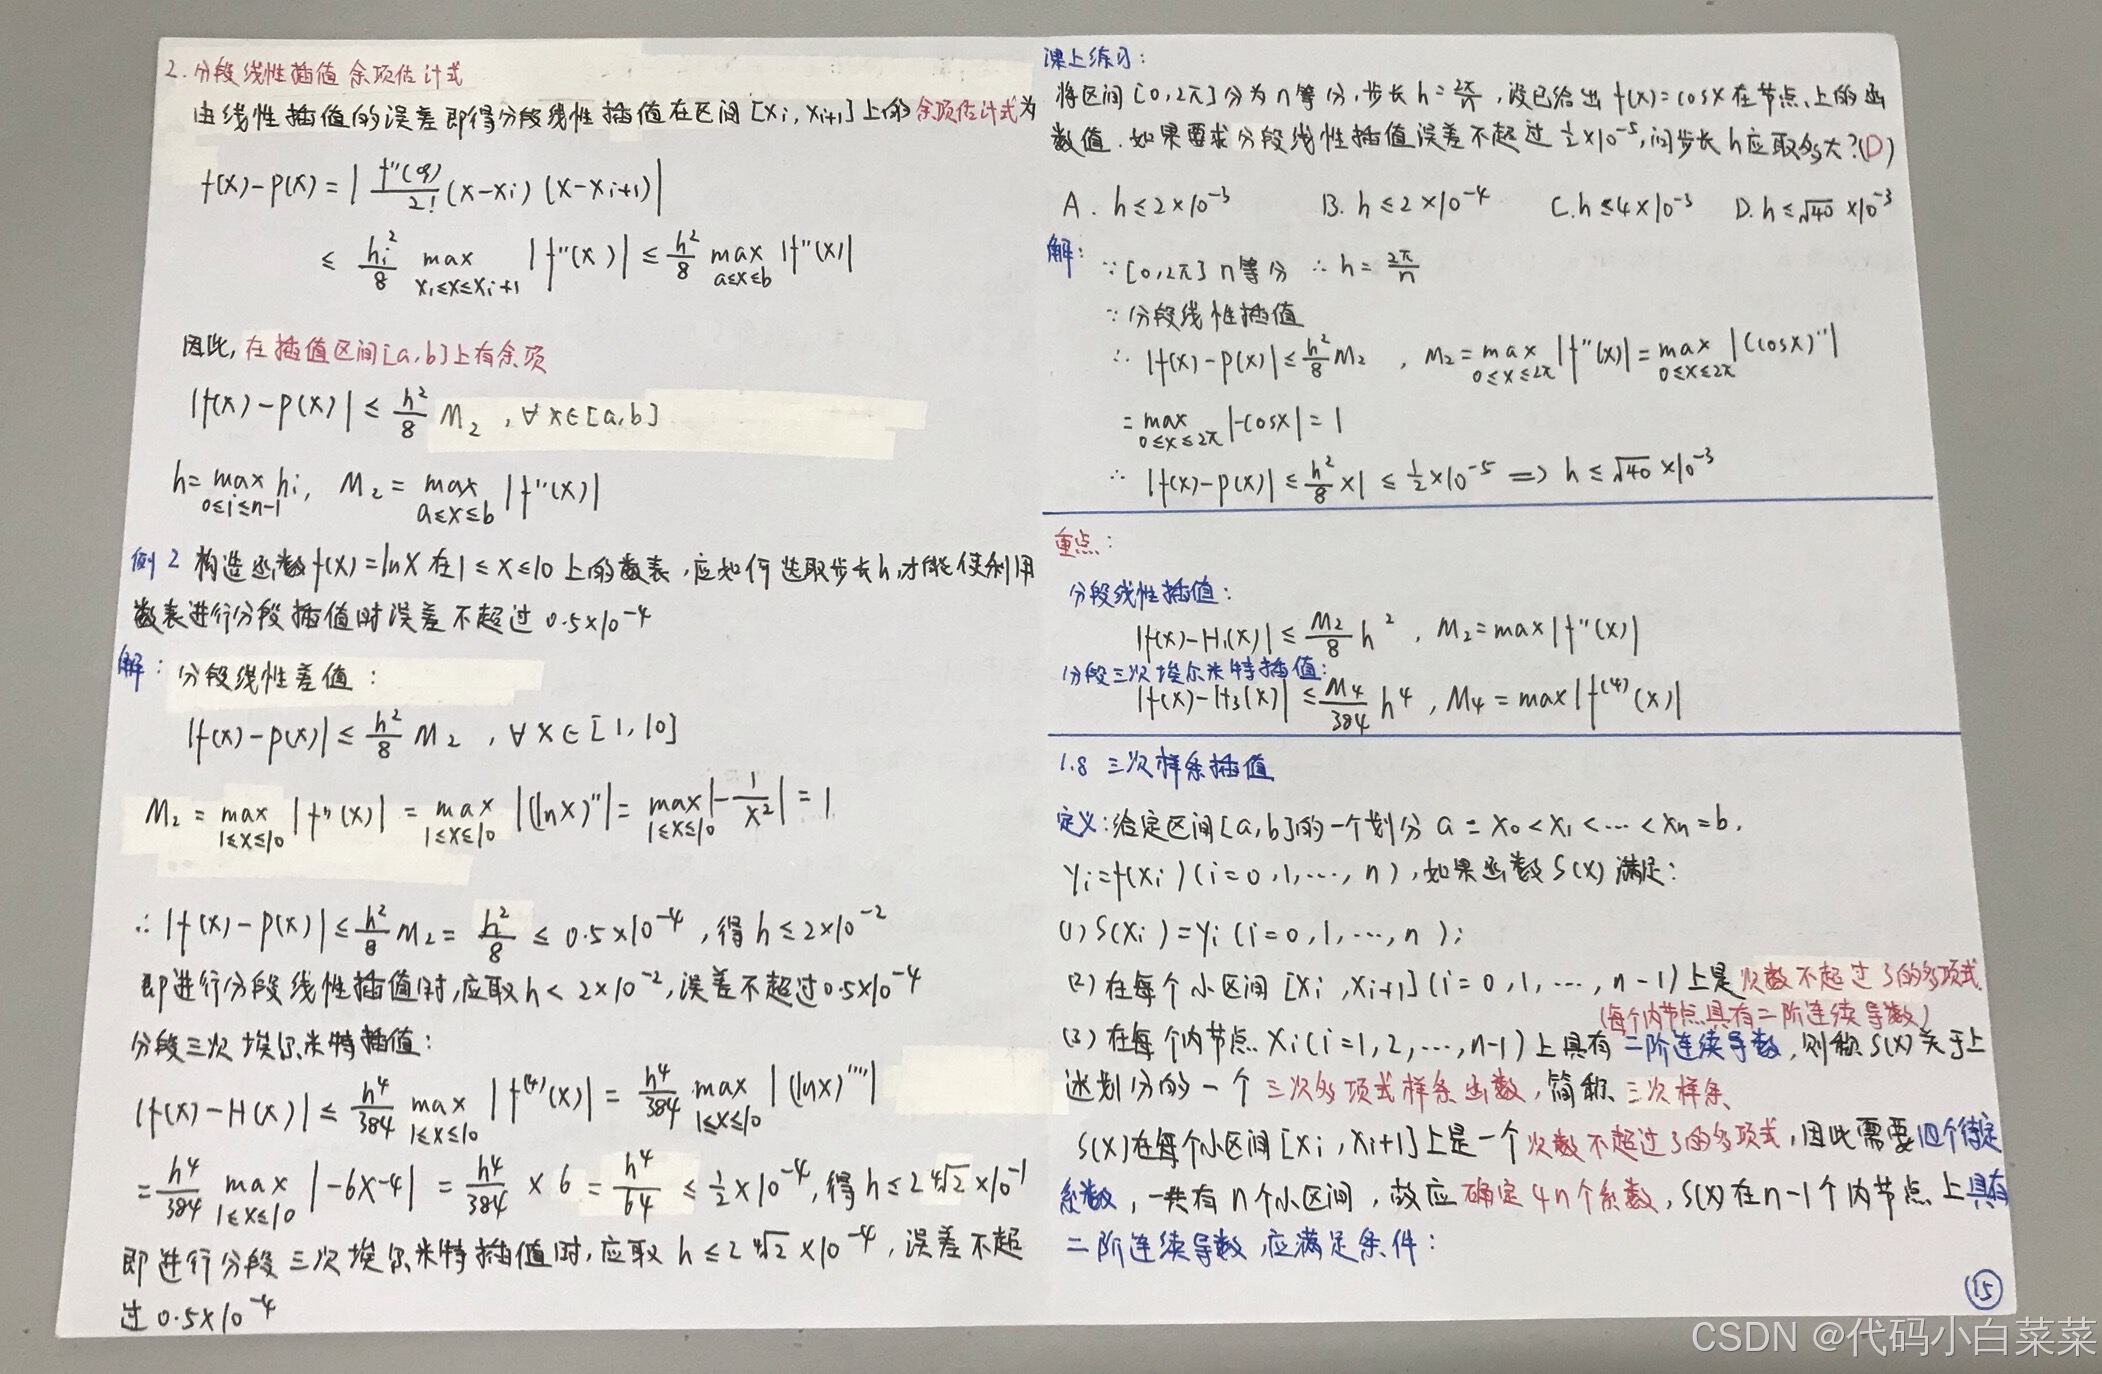 2.分段线性插值余项估计式
由线性插值的误差即得分段线性插值在区间[xi,xi+1]上的余项估计式为
f(x)-p(x)=|f''(ξ)/2!(x-xi)(x-xi+1)|
≤hi²/8 max xi≤x≤xi+1 |f''(x)|≤h²/8 max a≤x≤b |f''(x)|
因此,在插值区间[a,b]上有余项
|f(x)-p(x)|≤h²/8 M₂,∀x∈[a,b]
h=max 0≤i≤n-1 hi, M₂=max a≤x≤b |f''(x)|
例2 构造函数f(x)=lnx在1≤x≤10上的数表,应如何选取步长h,才能使利用
数表进行分段插值时误差不超过0.5×10⁻⁴
解:分段线性差值:
|f(x)-p(x)|≤h²/8 M₂,∀x∈[1,10]
M₂=max 1≤x≤10 |f''(x)|=max 1≤x≤10 |(lnx)''|=max 1≤x≤10 |-1/x²|=1
∴|f(x)-p(x)|≤h²/8 M₂=h²/8≤0.5×10⁻⁴,得h≤2×10⁻²
即进行分段线性插值时,应取h<2×10⁻²,误差不超过0.5×10⁻⁴
分段三次埃尔米特插值:
|f(x)-H(x)|≤h⁴/384 max 1≤x≤10 |f⁽⁴⁾(x)|=h⁴/384 max 1≤x≤10 |(lnx)''''|
=h⁴/384 max 1≤x≤10 |-6x-4|=h⁴/384×6=h⁴/64≤1/2×10⁻⁴,得h≤2⁴√2×10⁻¹
即进行分段三次埃尔米特插值时,应取h≤2⁴√2×10⁻⁴,误差不超
过0.5×10⁻⁴
课上练习:
将区间[0,2π]分为n等分,步长h=2π/n,设已给出f(x)=cosx在节点上的函
数值.如果要求分段线性插值误差不超过1/2×10⁻⁵,问步长h应取多大?(D)
A.h≤2×10⁻³ B.h≤2×10⁻⁴ C.h≤4×10⁻³ D.h≤√40×10⁻³
解:∵[0,2π]n等分 ∴h=2π/n
∵分段线性插值
∴|f(x)-p(x)|≤h²/8 M₂,M₂=max 0≤x≤2π |f''(x)|=max 0≤x≤2π |(cosx)''|
=max 0≤x≤2π |-cosx|=1
∴|f(x)-p(x)|≤h²/8×1≤1/2×10⁻⁵⟹h≤√40×10⁻³
重点:
分段线性插值:
|f(x)-H₁(x)|≤M₂/8 h²,M₂=max|f''(x)|
分段三次埃尔米特插值:
|f(x)-H₃(x)|≤M₄/384 h⁴,M₄=max|f⁽⁴⁾(x)|
1.8 三次样条插值
定义:给定区间[a,b]的一个划分a=x₀<x₁<…<xn=b,
yi=f(xi)(i=0,1,…,n),如果函数S(x)满足:
(1)S(xi)=yi(i=0,1,…,n);
(2)在每个小区间[xi,xi+1](i=0,1,…,n-1)上是次数不超过3的多项式.
(每个内节点具有二阶连续导数)
(3)在每个内节点xi(i=1,2,…,n-1)上具有二阶连续导数,则称S(x)关于上
述划分的一个三次多项式样条函数,简称三次样条
S(x)在每个小区间[xi,xi+1]上是一个次数不超过3的多项式,因此需要四个待定
系数,一共有n个小区间,故应确定4n个系数,S(x)在n-1个内节点上具有
二阶连续导数,应满足条件:
15
CSDN @代码小白菜菜